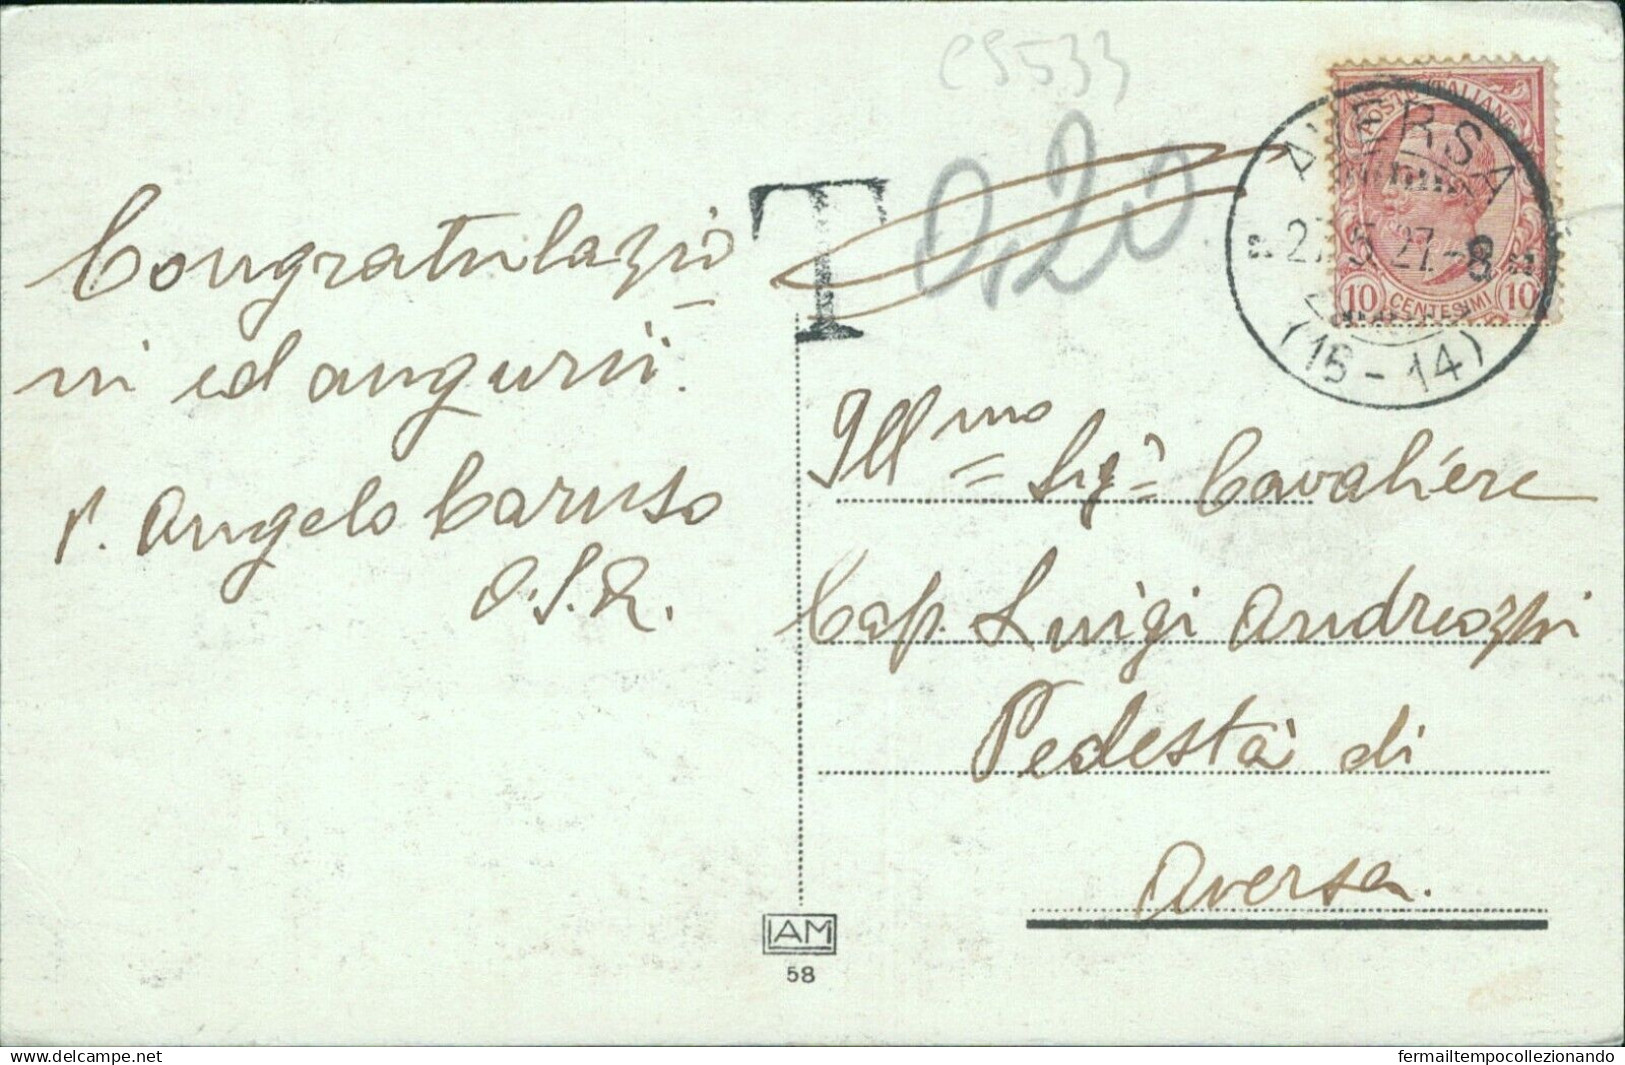 cs533
0,20
T
POSTE ITALIANE
AVERSA
27.5.27.-8
(16-14)
10 CENTESIMI 10
Congratulazio-
ni ed auguri.
P. Angelo Caruso
O.S.R.
Ill.mo = Sig.r Cavaliere
Cap. Luigi Andreozzi
Pedestà di
Aversa.
IAM
58
www.delcampe.net
fermailtempocollezionando